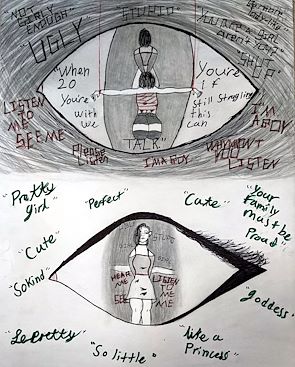 NOT GIRLY ENOUGH
"STUPID"
YOU'RE A GIRL AREN'T YOU?
"UGLY"
SHUT UP
"When 20
You're
with we
You're if
still
this
can
TALK"
LISTEN TO ME
SEE ME
I'M A BOY
Please Listen
I'M A BOY
WHY WON'T YOU LISTEN
"Pretty girl"
"Perfect"
"Cute"
"Your Family must be Proud"
"Cute"
"So Kind"
HEAR ME
SEE ME
LISTEN TO ME
"goddess"
"So little"
"like a Princess"